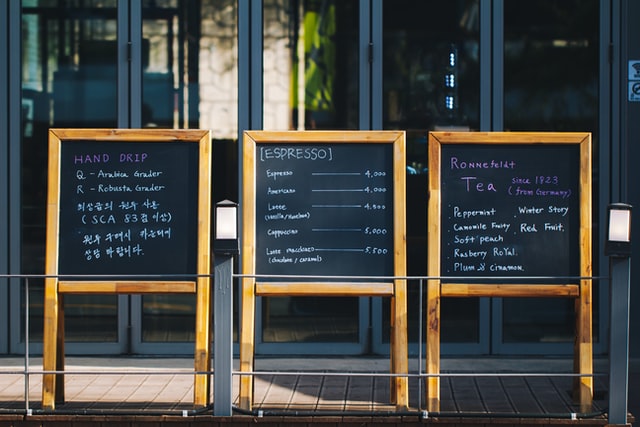 HAND DRIP
Q - Arabica Grader
R - Robusta Grader
최상급의 원두 사용
( SCA 83점 이상)
원두 구매시 카운터에
상담 바랍니다.
[ESPRESSO]
Espresso 4,000
Americano 4,000
Latte 4,500
(vanilla/Hazelnut)
Cappuccino 5,000
Latte macchiato 5,500
(chocolate / caramel)
Ronnefeldt
Tea since 1823
(from Germany)
· Peppermint · Winter Story
· Camomile Fruity · Red Fruit.
· Soft peach
· Rasberry RoYal.
· Plum & Cinamon.